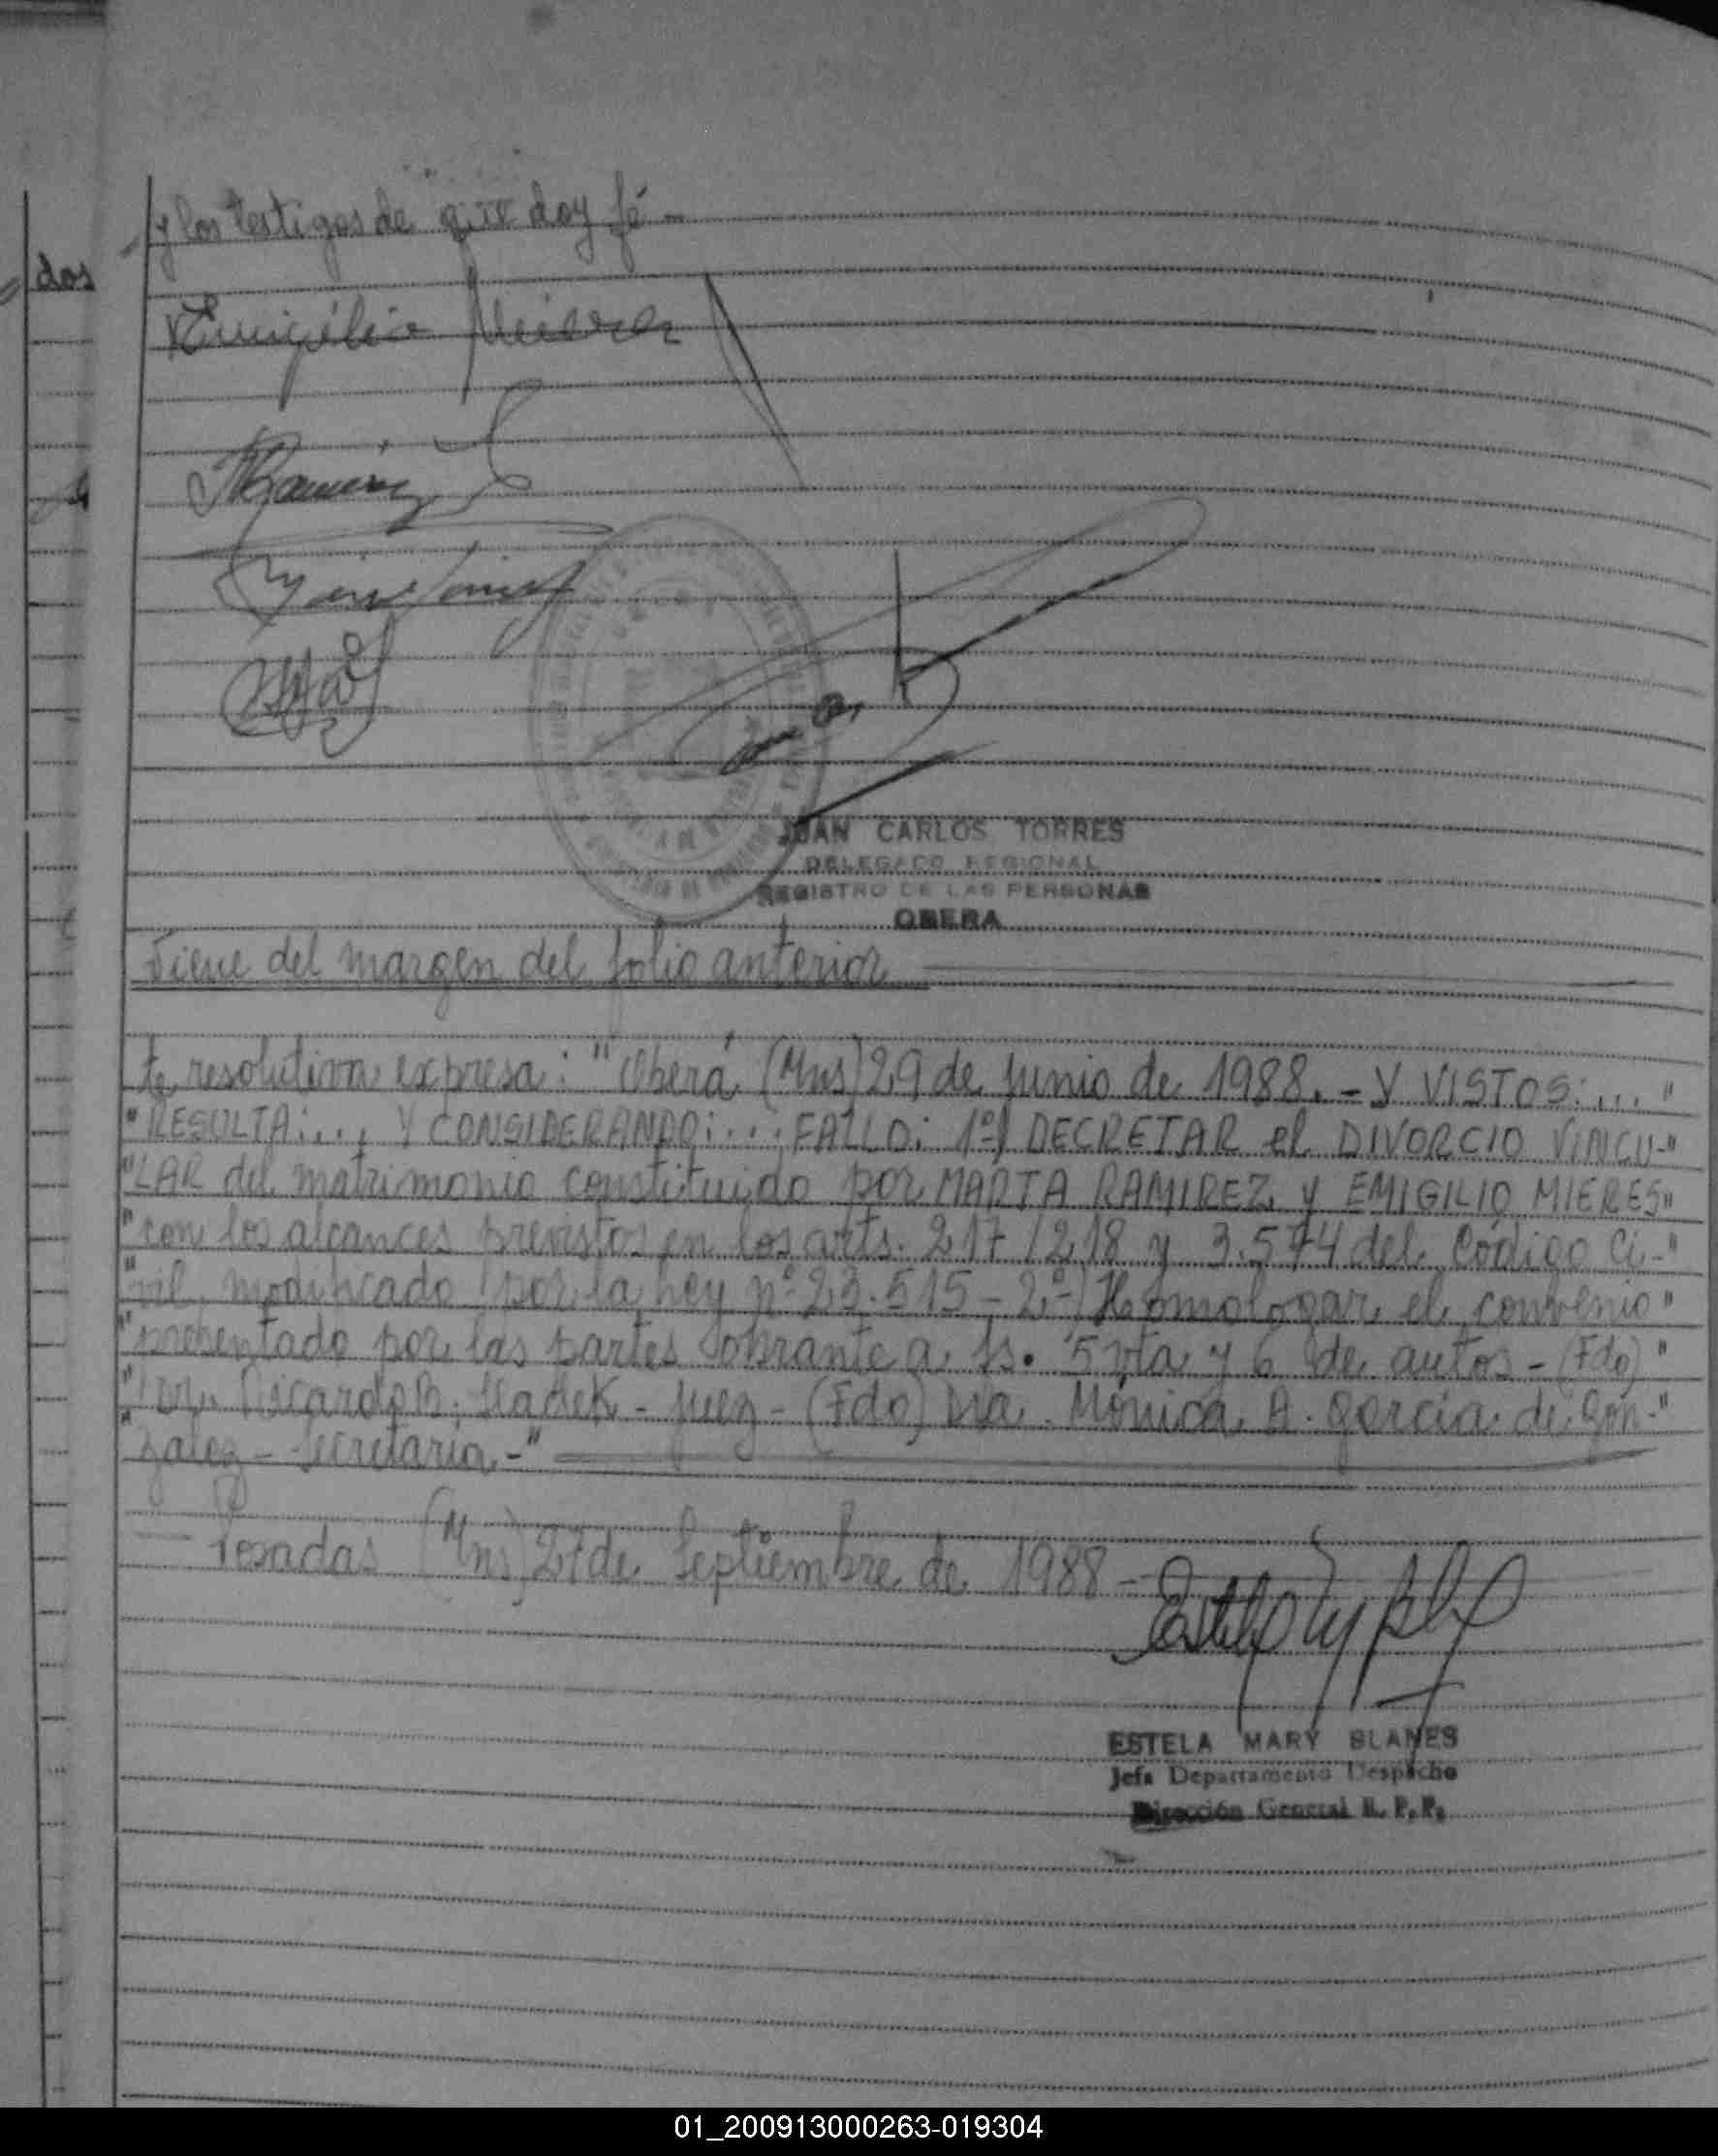 dos
y los testigos de que doy fé
Emigilio Mieres
MRamirez
JUAN CARLOS TORRES
DELEGADO REGIONAL
REGISTRO DE LAS PERSONAS
OBERA
Viene del margen del folio anterior
te resolutiva expresa: "Oberá (Mns) 29 de junio de 1988. - Y VISTOS: ... "
"RESULTA: ... Y CONSIDERANDO: ... FALLO: 1º) DECRETAR el DIVORCIO VINCU-"
"LAR del matrimonio constituido por MARTA RAMIREZ y EMIGILIO MIERES"
"con los alcances previstos en los arts. 217/218 y 3.574 del Código Ci-"
"vil, modificado por la Ley nº 23.515 - 2º-) Homologar el convenio"
"presentado por las partes obrante a fs. 5 vta y 6 de autos - (Fdo) "
"Dr. Ricardo B. - Juez - (Fdo) Dra. Mónica A. García de Gon-"
"zalez - Secretaria -"
Posadas (Mns), 27 de Septiembre de 1988 -
ESTELA MARY BLANES
Jefa Departamento Despacho
Dirección General R. P. P.
01_200913000263-019304